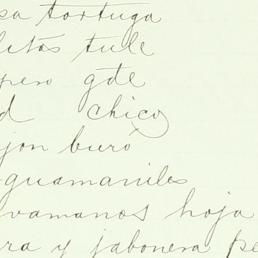 sa tortuga
litos tule
pero gde
d chico
jon buro
guamaniles
vamanos hoja
ra y jabonera pe